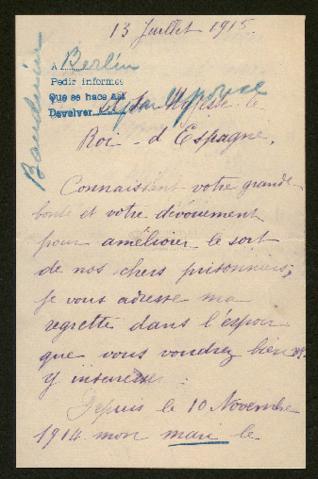 13 Juillet 1915.
A Berlin
Pedir informes
Que se hace así
Devolver
Sa Majesté le
Roi d'Espagne,
Connaissant votre grande
bonté et votre dévouement
pour améliorer le sort
de nos chers prisonniers,
je vous adresse ma
regrette dans l'espoir
que vous voudrez bien
y intéresser :
Depuis le 10 Novembre
1914 mon mari le